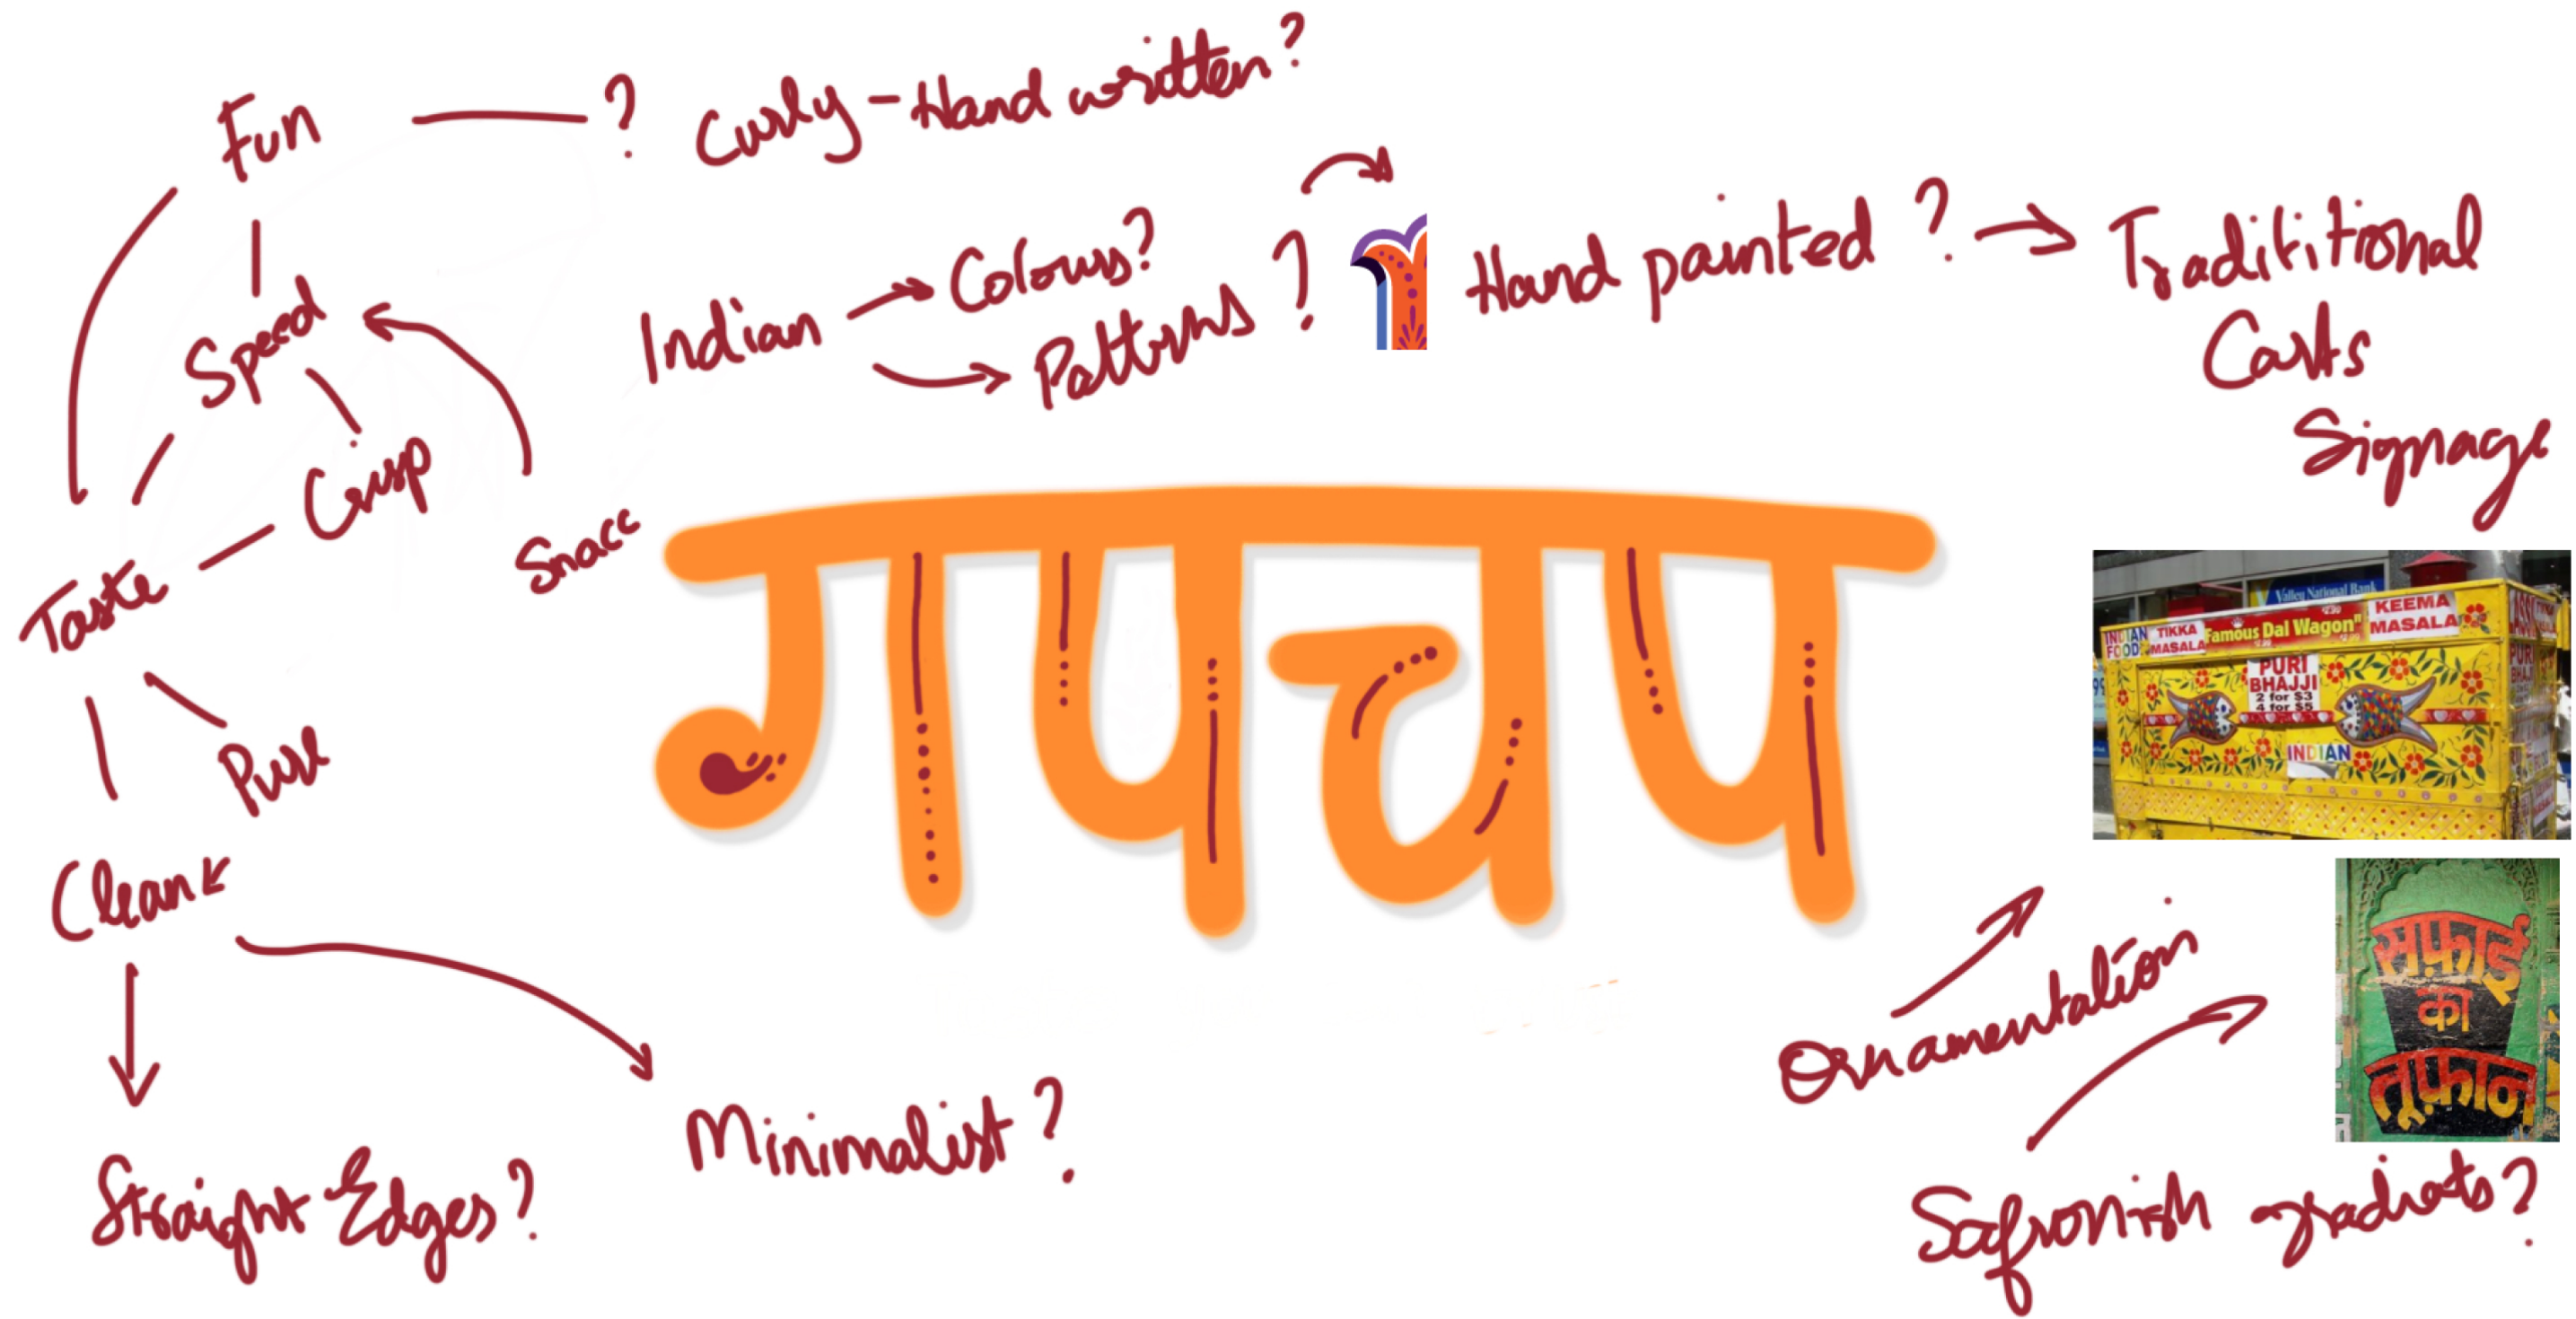 Fun
? Curly - Hand written?
Speed
Crisp
Snacc
Taste
Pure
Clean
Straight Edges?
Minimalist?
Indian
Colours?
Patterns?
Hand painted?
Tradititional
Carts
Signage
गपचप
Valley National Bank
INDIAN
FOOD
TIKKA
MASALA
Famous Dal Wagon"
KEEMA
MASALA
PURI
BHAJJI
2 for $3
4 for $5
INDIAN
सफ़ाई
का
तूफ़ान
Ornamentation
Safronish gradiats?